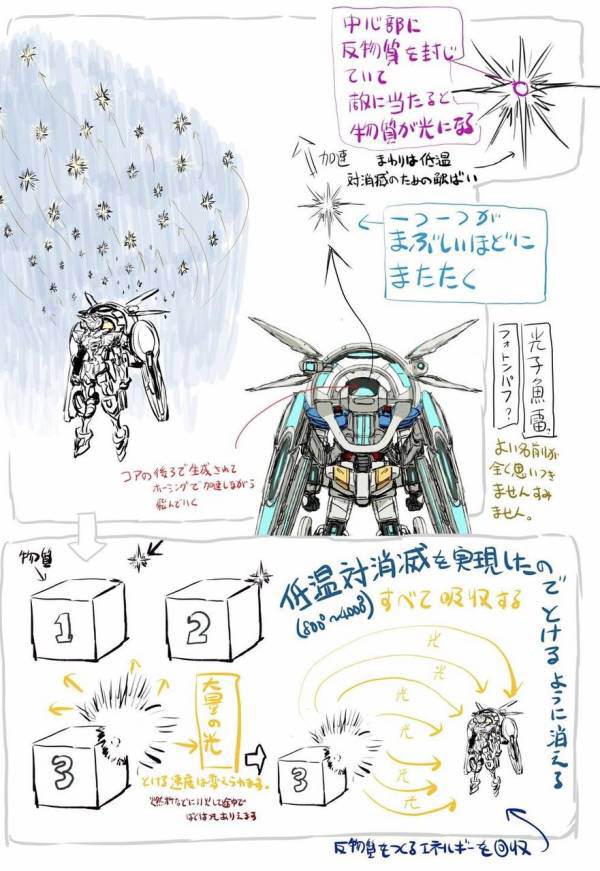 中心部に
反物質を封じ
ていて
敵に当たると
物質が光になる
加速
まわりは低温
対消滅のための
一つ一つが
まぶしいほどに
またたく
光子魚雷
フォトンパフ?
よい名前が
全く思いつき
ませんすみ
ません。
コアの後ろで生成されて
ホーミングで加速しながら
飛んでいく
物質
1
2
低温対消滅を実現したので とけるように消える
(800°~4000°)
すべて吸収する
3
大量の光
とける速度は変えられます。
3
光
光
光
光
光
光
反物質をつくるエネルギーを回収